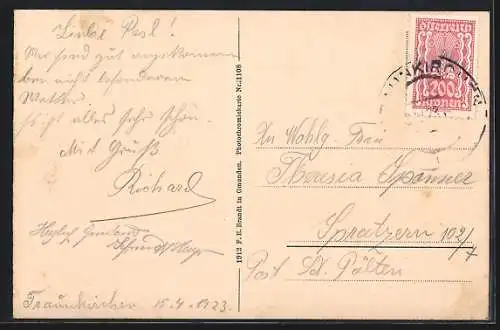 Liebe Resl!
Wir sind gut angekommen
bei nicht besonderem
Wetter
ist alles sehr schön.
Mit Gruß
Richard
Traunkirchen 15.4.1923.
1912 F. E. Brandt in Gmunden. Photochromiekarte Nr. 1108
Österreich
200
Kronen
An Wohlg. Frau
Theresia Spanner
Spratzern 102/7
Post St. Pölten